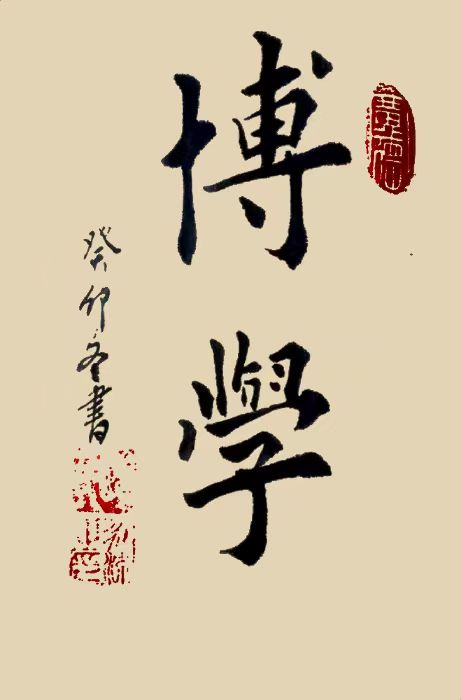 博學
癸卯冬書